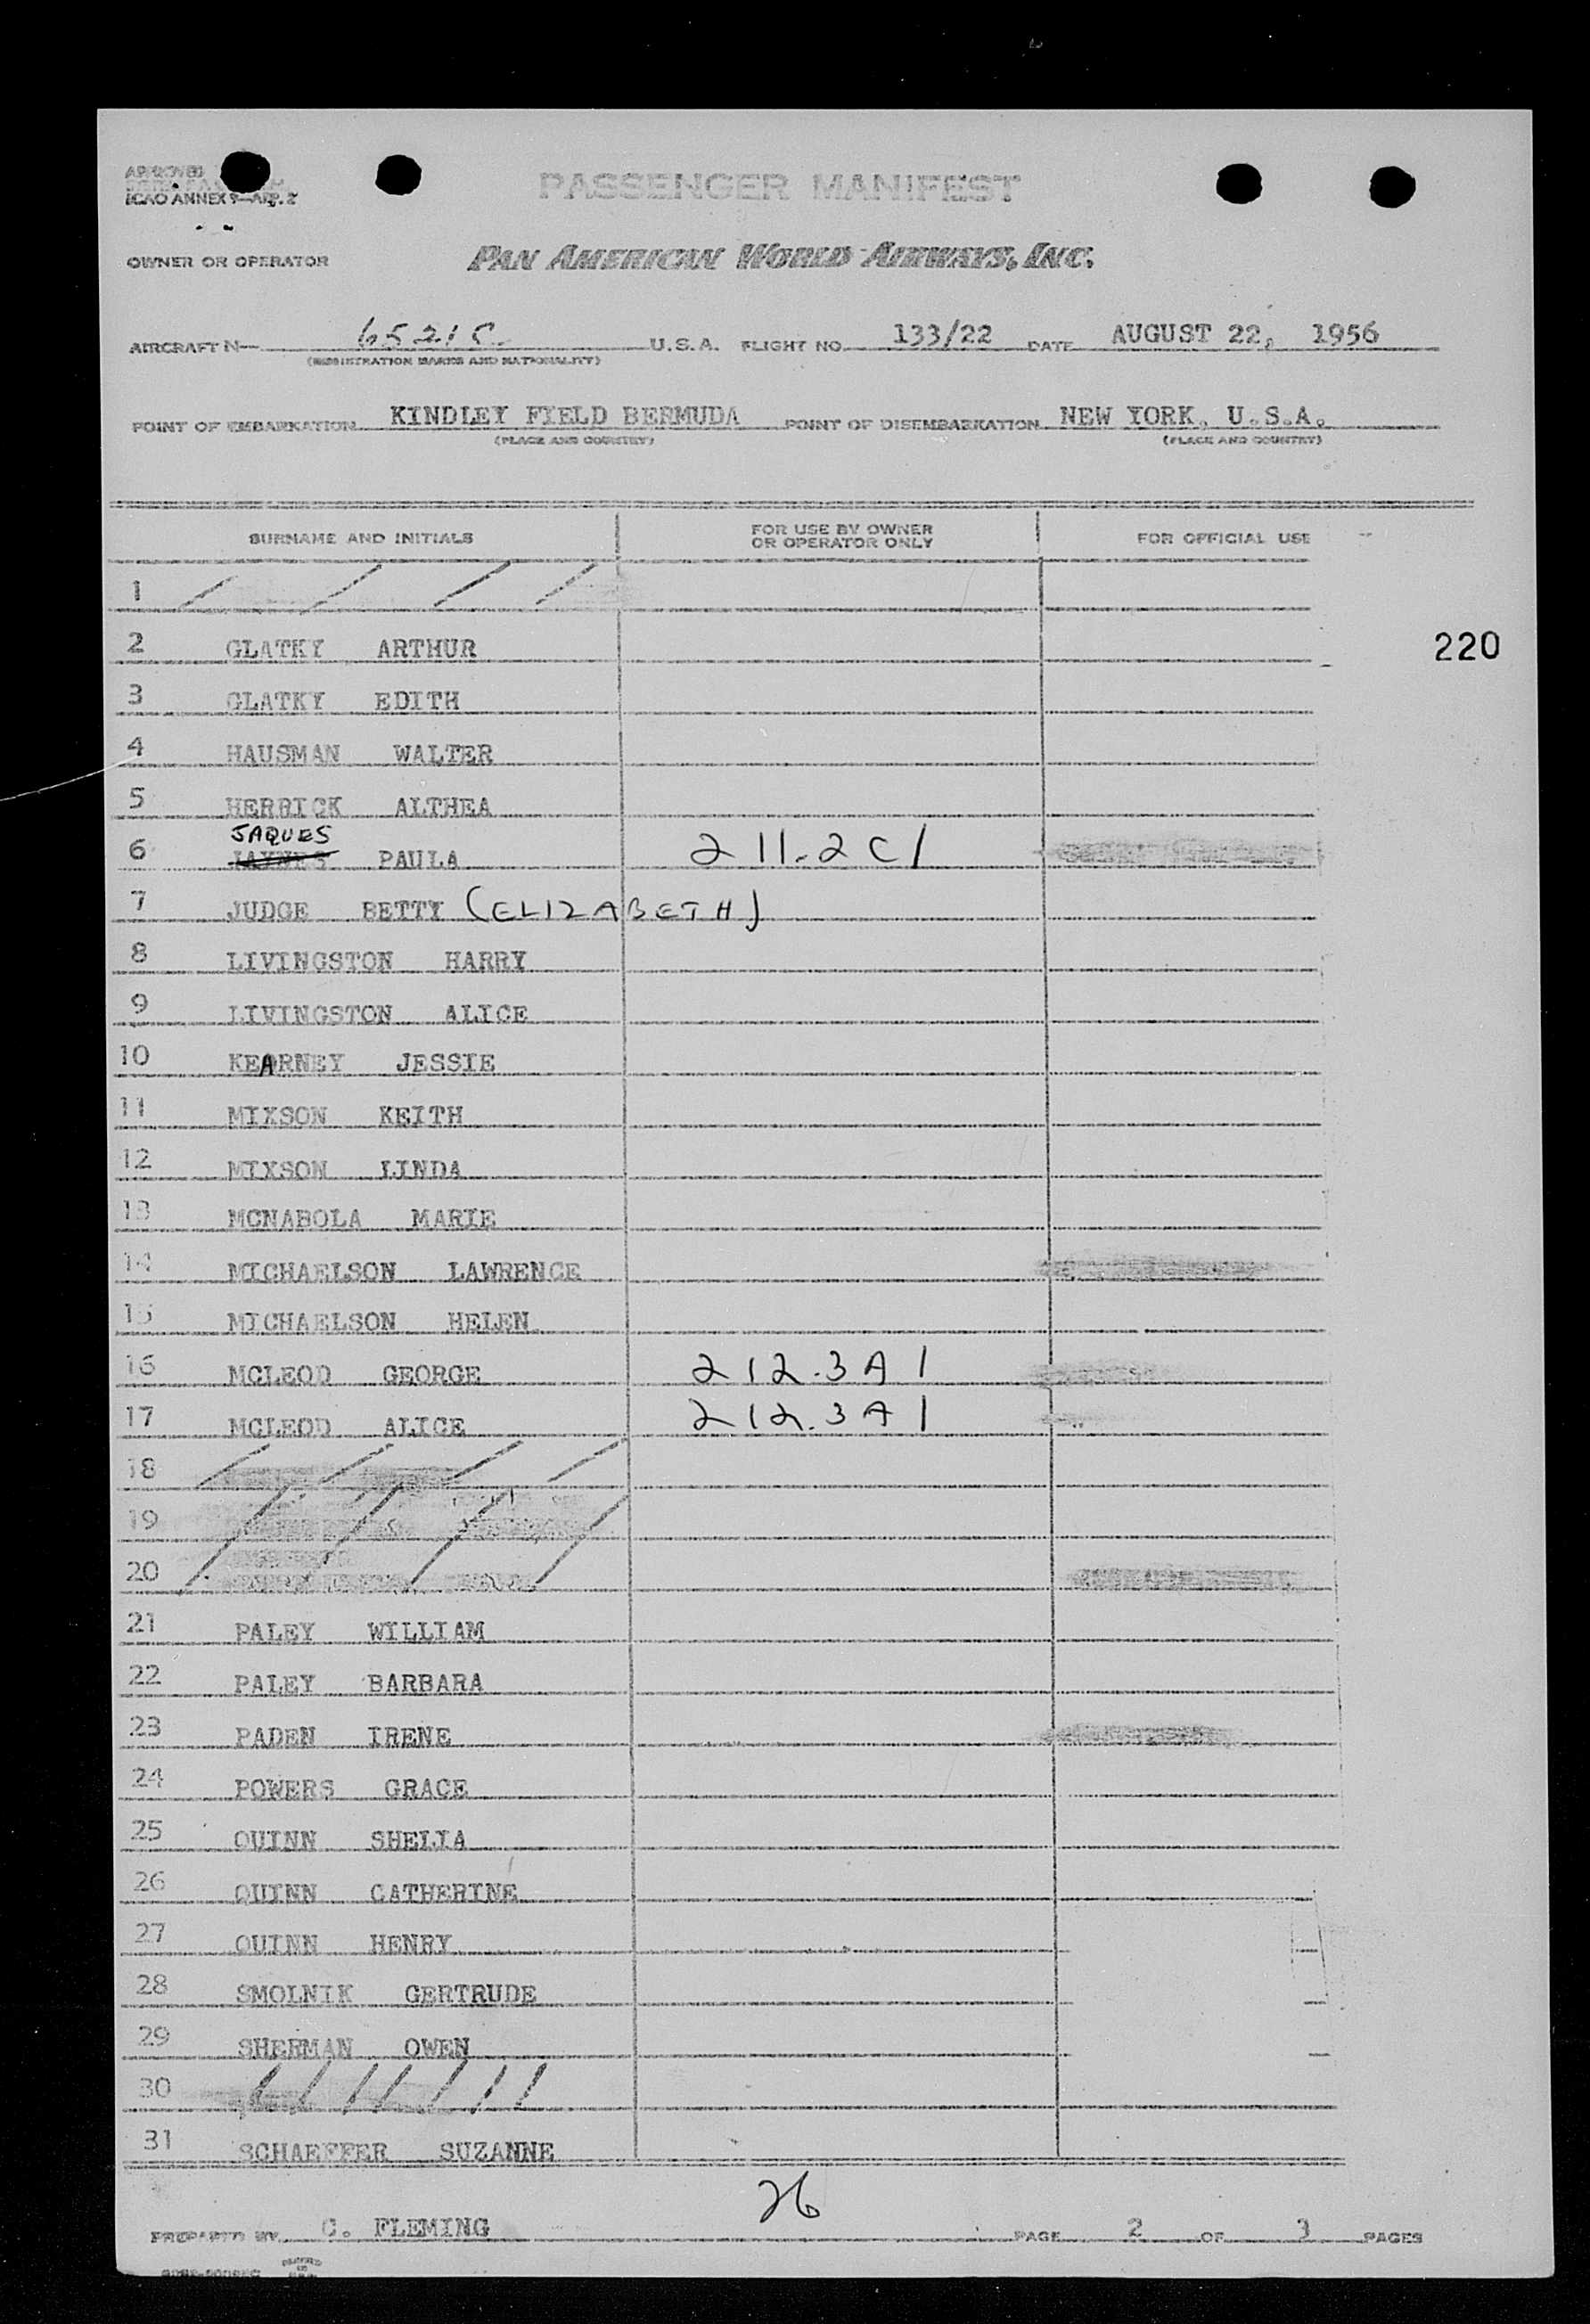 APPROVED
ICAO ANNEX 9—APP. 2
PASSENGER MANIFEST
OWNER OR OPERATOR PAN AMERICAN WORLD AIRWAYS, INC.
AIRCRAFT N— 6521C U.S.A. FLIGHT NO. 133/22 DATE AUGUST 22, 1956
(REGISTRATION MARKS AND NATIONALITY)
POINT OF EMBARKATION KINDLEY FIELD BERMUDA POINT OF DISEMBARKATION NEW YORK, U.S.A.
(PLACE AND COUNTRY) (PLACE AND COUNTRY)
SURNAME AND INITIALS FOR USE BY OWNER OR OPERATOR ONLY FOR OFFICIAL USE
1 / / / /
2 GLATKY ARTHUR
220
3 GLATKY EDITH
4 HAUSMAN WALTER
5 HERRICK ALTHEA
JAQUES
6 JAYNES PAULA 211.2C1
7 JUDGE BETTY (ELIZABETH)
8 LIVINGSTON HARRY
9 LIVINGSTON ALICE
10 KEARNEY JESSIE
11 MIXSON KEITH
12 MIXSON LINDA
13 MCNABOLA MARIE
14 MICHAELSON LAWRENCE
15 MICHAELSON HELEN
16 MCLEOD GEORGE 212.3A1
17 MCLEOD ALICE 212.3A1
18 / / / /
19 / / / /
20 / / / /
21 PALEY WILLIAM
22 PALEY BARBARA
23 PADEN IRENE
24 POWERS GRACE
25 QUINN SHELIA
26 QUINN CATHERINE
27 QUINN HENRY
28 SMOLNIK GERTRUDE
29 SHERMAN OWEN
30 / / / / / / /
31 SCHAEFFER SUZANNE
26
PREPARED BY C. FLEMING PAGE 2 OF 3 PAGES
PRINTED IN U.S.A.